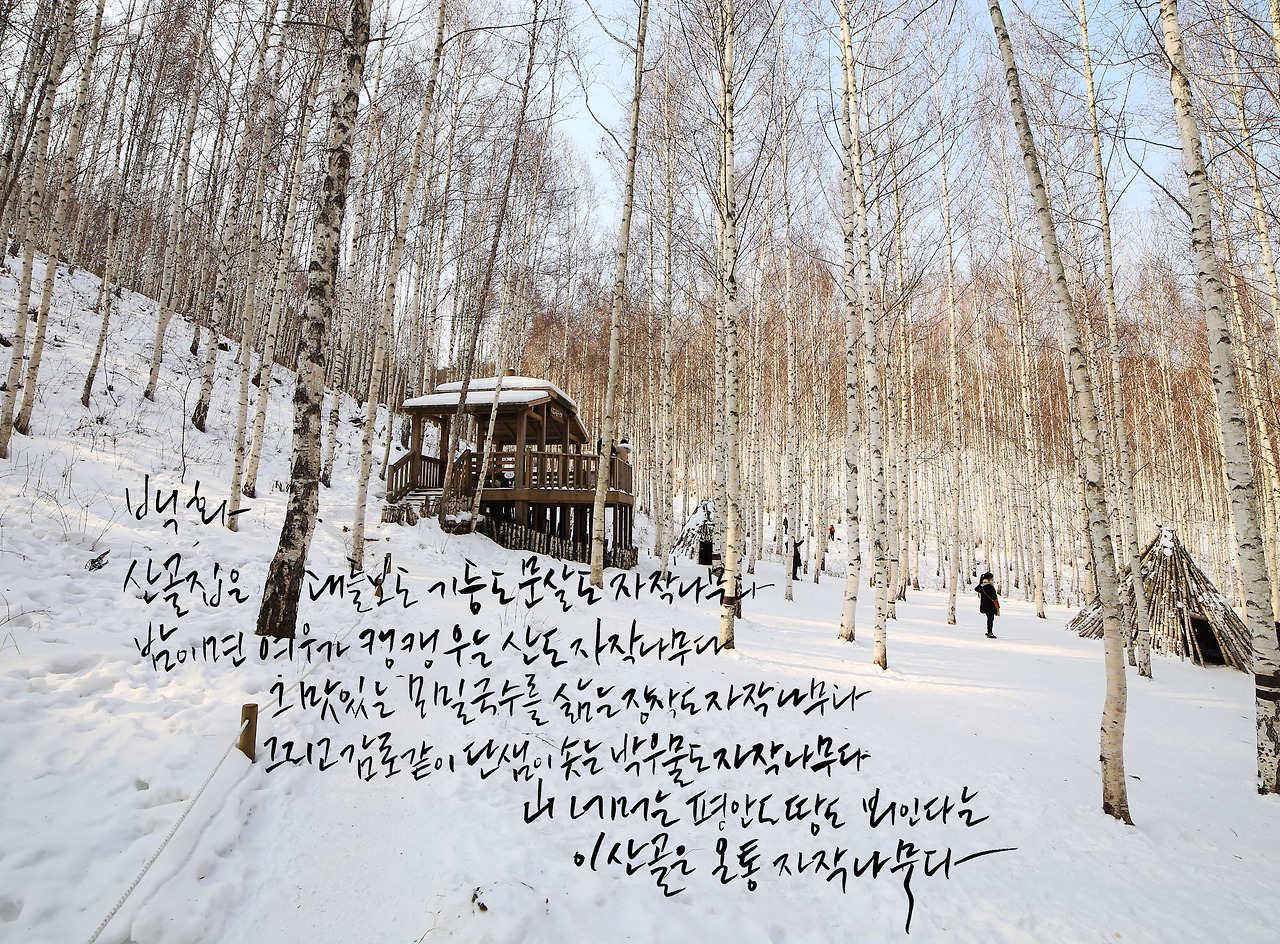 백화
산골집은 대들보도 기둥도 문살도 자작나무다
밤이면 여우가 캥캥 우는 산도 자작나무다
그 맛있는 모밀국수를 삶는 장작도 자작나무다
그리고 감로같이 단샘이 솟는 박우물도 자작나무다
山 너머는 평안도 땅도 뵈인다는
이 산골은 온통 자작나무다